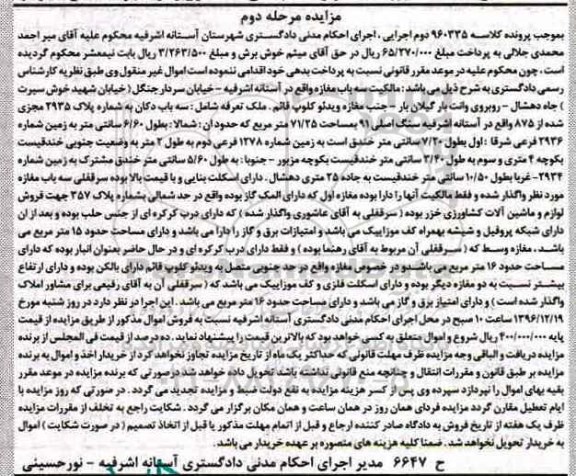 مزایده مرحله دوم
بموجب پرونده کلاسه ۹۶۰۳۳۵ دوم اجرایی ، اجرای احکام مدنی دادگستری شهرستان آستانه اشرفیه محکوم علیه آقای میر احمد
محمدی جلالی به پرداخت مبلغ ۶۵/۲۷۰/۰۰۰ ریال در حق آقای میثم خوش برش و مبلغ ۳/۲۶۳/۵۰۰ ریال بابت نیمعشر محکوم گردیده
است ، چون محکوم علیه در موعد مقرر قانونی نسبت به پرداخت بدهی خود اقدامی ننموده است اموال غیر منقول وی طبق نظریه کارشناس
رسمی دادگستری به شرح ذیل می باشد : مالکیت سه باب مغازه واقع در آستانه اشرفیه - خیابان سردار جنگل ( خیابان شهید خوش سیرت
) جاه دهشال - روبروی وانت بار گیلان بار - جنب مغازه ویدئو کلوپ قائم . ملک تعرفه شامل : سه باب دکان به شماره پلاک ۲۹۳۵ مجزی
شده از ۸۷۵ واقع در آستانه اشرفیه سنگ اصلی ۹۱ بمساحت ۷۱/۲۵ متر مربع که حدود آن : شمالا : بطول ۶/۶۰ سانتی متر به زمین شماره
۲۹۳۶ فرعی شرقا : اول بطول ۷/۲۰ سانتی متر خندق است به زمین شماره ۱۲۷۸ فرعی دوم به طول ۲ متر به وضعیت جنوبی خندقیست
بکوچه ۴ متری و سوم به طول ۳/۴۰ سانتی متر خندقیست بکوچه مزبور - جنوبا : به طول ۵/۶۰ سانتی متر خندق مشترک به زمین شماره
۲۹۳۴- غربا بطول ۱۰/۵۰ سانتی متر خندقیست به جاده ۲۵ متری دهشال . دارای اسکلت بنایی و با قیمت بالا بوده سرقفلی سه باب مغازه
مورد نظر واگذار شده و فقط مالکیت آنها را دارا بوده مغازه اول که دارای المک گاز بوده واقع در حد شمالی بشماره پلاک ۳۵۷ جهت فروش
لوازم و ماشین آلات کشاورزی خزر بوده ( سرقفلی به آقای عاشوری واگذار شده ) که دارای درب کرکره ای از جنس حلب بوده و بعد از ان
دارای شبکه پروفیل و شیشه بهمراه کف موزاییک می باشد و امتیازات برق و گاز را دارا می باشد و دارای مساحت حدود ۱۵ متر مربع می
باشد . مغازه وسط که ( سرقفلی آن مربوط به آقای رهنما بوده ) و فقط دارای درب کرکره ای و در حال حاضر بعنوان انبار بوده که دارای
مساحت حدود ۱۶ متر مربع می باشد و در خصوص مغازه واقع در حد جنوبی متصل به ویدئو کلوپ قائم دارای بالکن بوده و دارای ارتفاع
بیشتر نسبت به دو مغازه دیگر بوده و دارای اسکلت فلزی و کف موزاییک می باشد که ( سرقفلی آن به آقای رفیعی برای مشاور املاک
واگذار شده است ) و دارای امتیاز برق و گاز می باشد و دارای مساحت حدود ۱۶ متر مربع می باشد . این اجرا در نظر دارد در روز شنبه مورخ
۱۳۹۶/۱۲/۱۹ ساعت ۱۰ صبح در محل اجرای احکام مدنی دادگستری آستانه اشرفیه نسبت به فروش اموال مذکور از طریق مزایده از قیمت
پایه ۴۰۰/۰۰۰/۰۰۰ ریال شروع و اموال متعلق به کسی خواهد بود که بالاترین قیمت را پیشنهاد نماید . ده درصد از قیمت فی المجلس از برنده
مزایده دریافت و الباقی وجه مزایده ظرف مهلت قانونی که حداکثر یک ماه از تاریخ مزایده تجاوز نخواهد کرد از خریدار اخذ و اموال به برنده
مزایده بر طبق قانون و مقررات انتقال و چنانچه منع قانونی نداشته باشد تحویل داده خواهد شد در صورتی که برنده مزایده در موعد مقرر
بقیه بهای اموال را نپردازد سپرده وی پس از کسر هزینه مزایده به نفع دولت ضبط و مزایده تجدید می گردد . در صورتی که روز مزایده با
ایام تعطیل مقارن گردد مزایده فردای همان روز در همان ساعت و همان مکان برگزار می گردد . شکایت راجع به تخلف از مقررات مزایده
ظرف یک هفته از تاریخ فروش به دادگاه صادر کننده ارجاع و قبل از اتمام مهلت مذکور یا قبل از اتخاذ تصمیم ( در صورت شکایت ) اموال
به خریدار تحویل نخواهد شد . ضمنا کلیه هزینه های متصوره بر عهده خریدار می باشد .
ح ۶۶۴۷ مدیر اجرای احکام مدنی دادگستری آستانه اشرفیه - نورحسینی